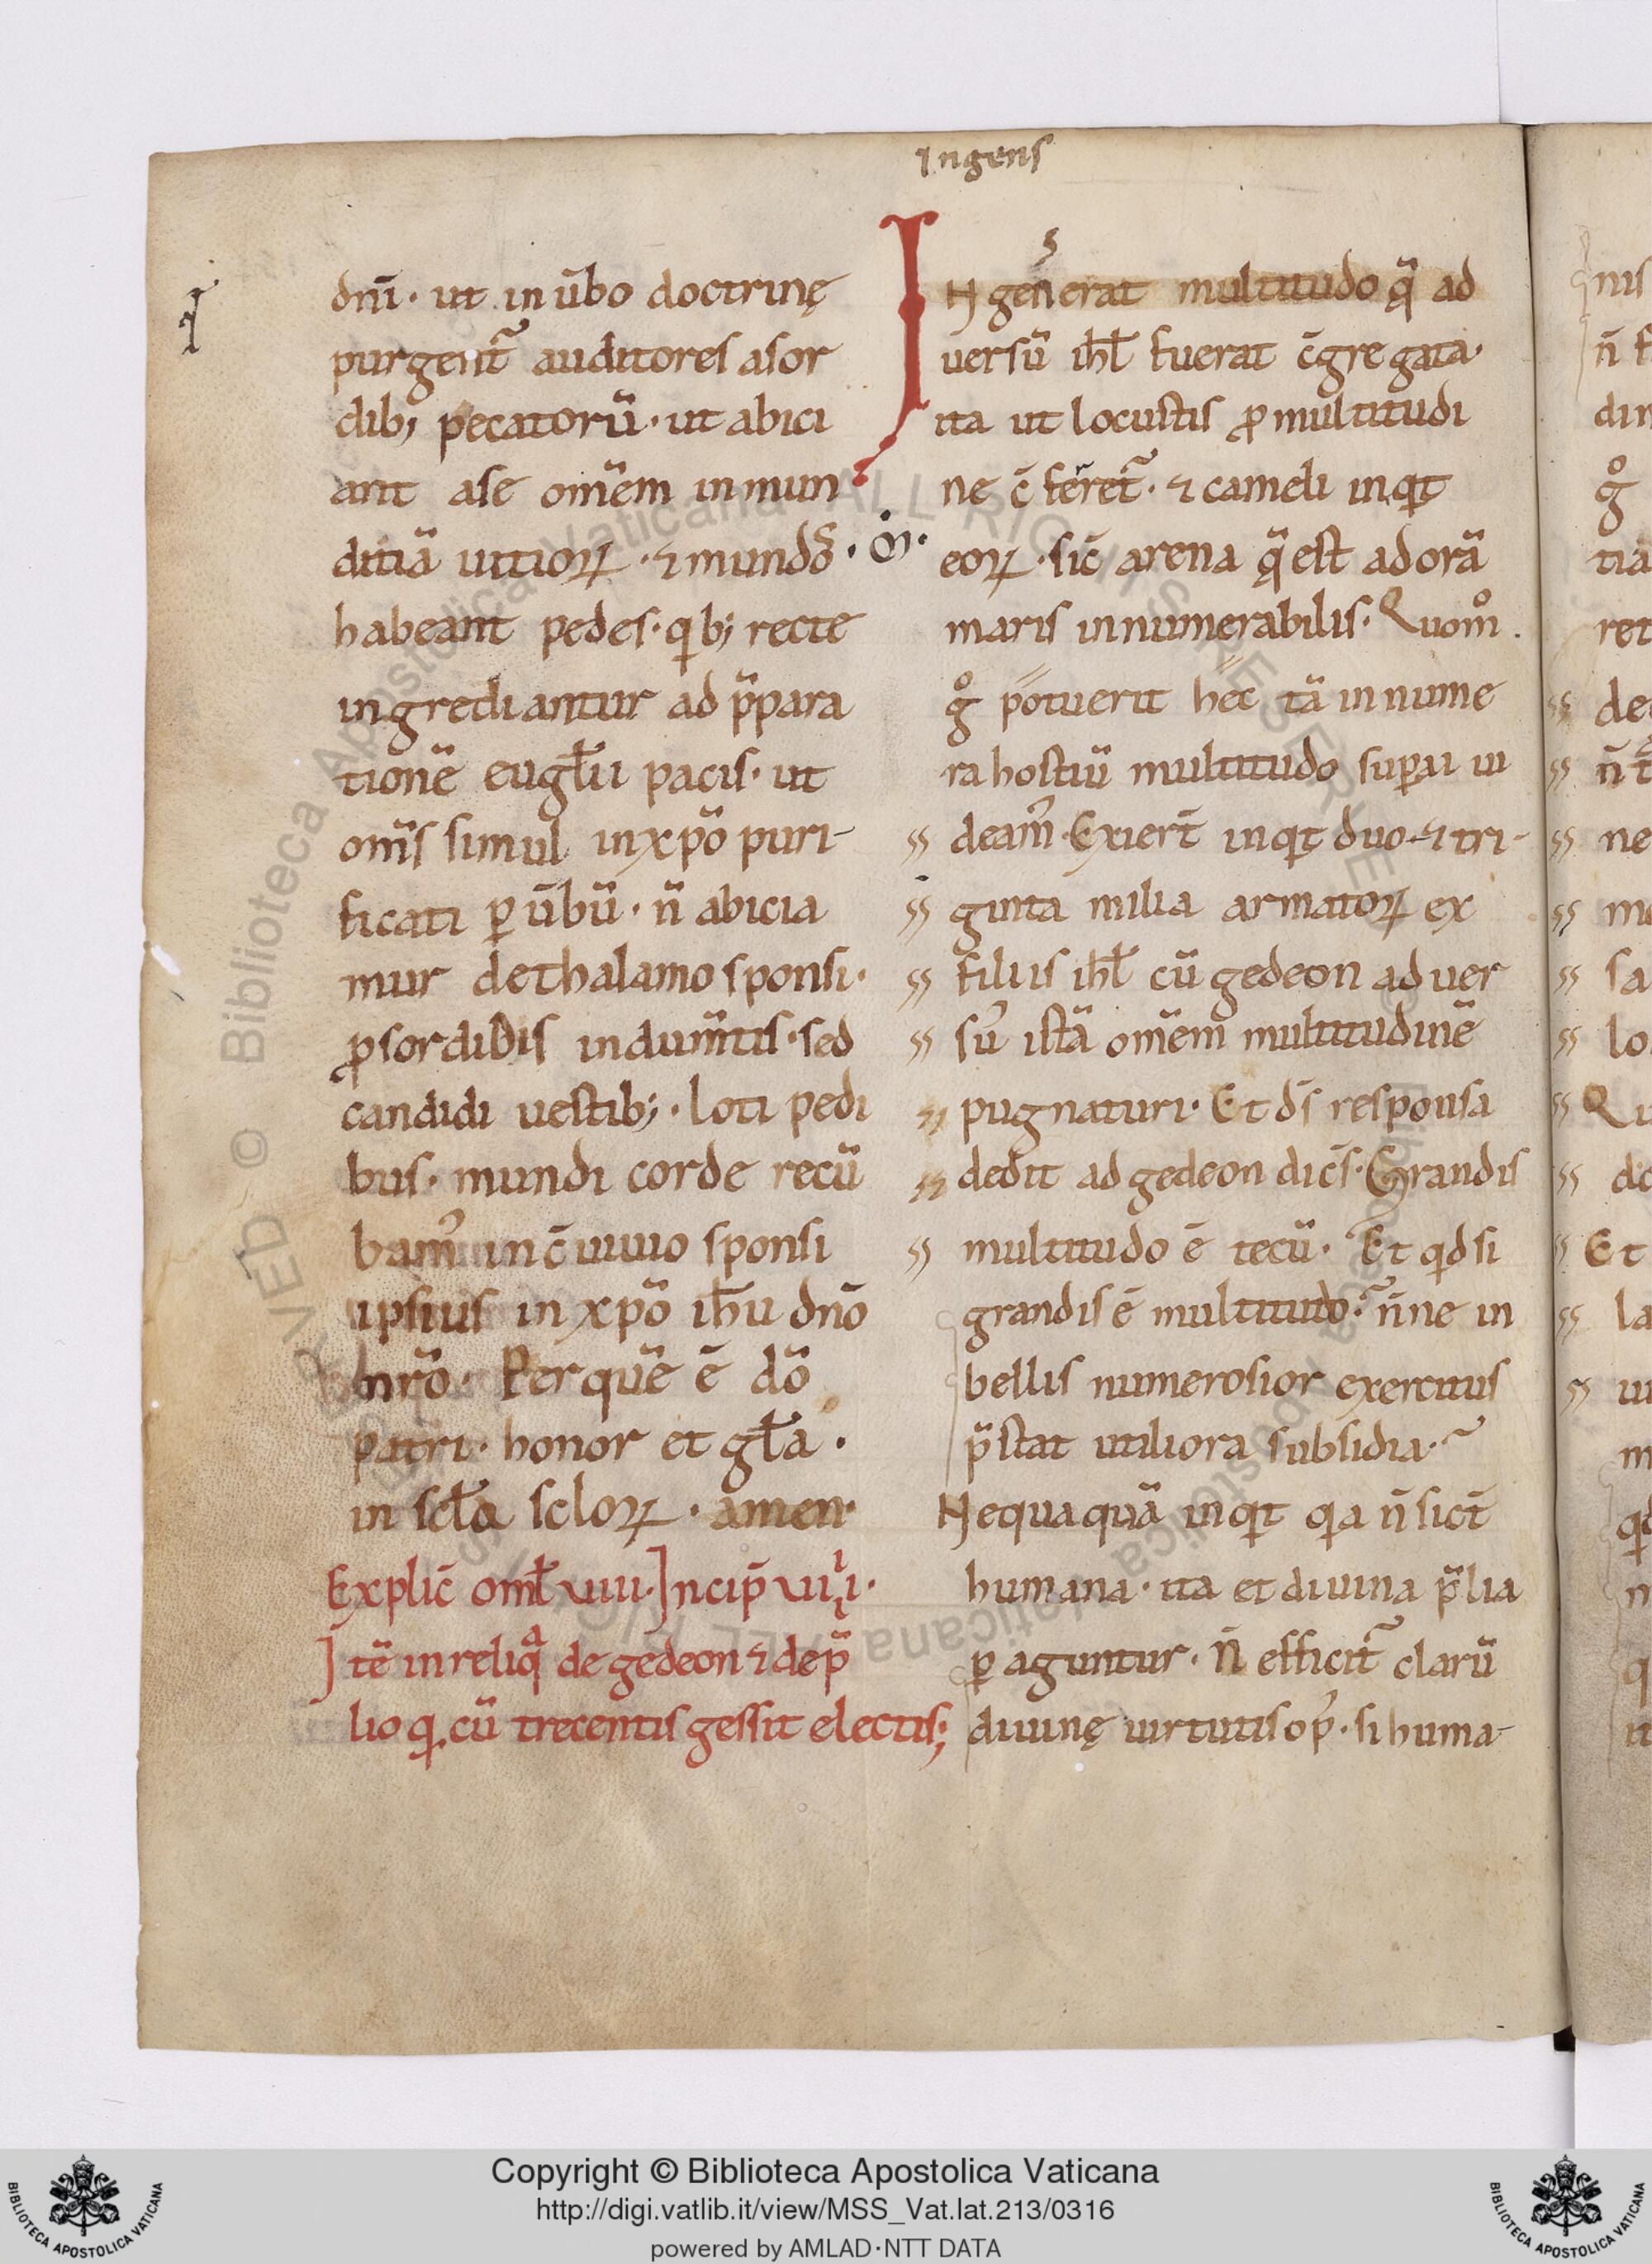 Ingens
dnī · ut in ūbo doctrinę
purgent᷑ auditores a sor
dib; pecatorū · ut abici
ant a se omēm inmun
ditiā uitioꝝ · ⁊ mundos · oīn ·
habeant pedes · qb; recte
ingrediantur ad p̄para
tionē eugłii pacis · ut
omīs simul in xpō puri-
ficati ꝑ ūbū · n̄ abicia
mur de thalamo sponsi ·
ꝓ sordidis indumtīs · sed
candidi uestib; · loti pedi
bus · mundi corde recū
bam᷒ in c̄uiuio sponsi
ipsius in xpō ihū dnō
nrō · Per quē ē dō
patri · honor et gła ·
in scła scloꝝ · amen ·
Explic̄ omł viii · Incip̄ viiii ·
Itē in reliq̄ de gedeon ⁊ de p̄
lio q cū trecentis gessit electis;
INgens erat multitudo q̄ ad
uersū ihł fuerat c̄gregata ·
ita ut locustis ꝓ multitudi
ne c̄ferret᷑ · ⁊ cameli inqt
eoꝝ · sic̄ arena q̄ est ad orā
maris innumerabilis · Quom̊ .
g̊ potuerit hec tā innume
ra hostiū multitudo suꝑai ui
deam᷒ · Exiert̄ inqt duo · ⁊ tri-
ginta milia armatoꝝ ex
filiis ihł cū gedeon aduer
su᷒ istā omēm multitudinē
pugnaturi · Et ds̄ responsa
dedit ad gedeon dic̄s · Grandis
multitudo ē tecū · Et qd si
grandis ē multitudo · n̄ne in
bellis numerosior exercitus
p̄stat utiliora subsidia ·
Nequaquā inqt qa n̄ sict̄
humana · ita et diuina p̄lia
ꝑaguntur · N̄ efficit᷑ clarū
diuinę uirtutis op᷒ · si huma-
nis
n̄ f
din
g̊
tiā
ret
de
n̄ t
ne
sa
lo
Qu
Et
la
Copyright © Biblioteca Apostolica Vaticana
http://digi.vatlib.it/view/MSS_Vat.lat.213/0316
powered by AMLAD·NTT DATA
BIBLIOTECA APOSTOLICA VATICANA
BIBLIOTECA APOSTOLICA VATICANA
© Biblioteca Apostolica Vaticana ALL RIGHTS RESERVED